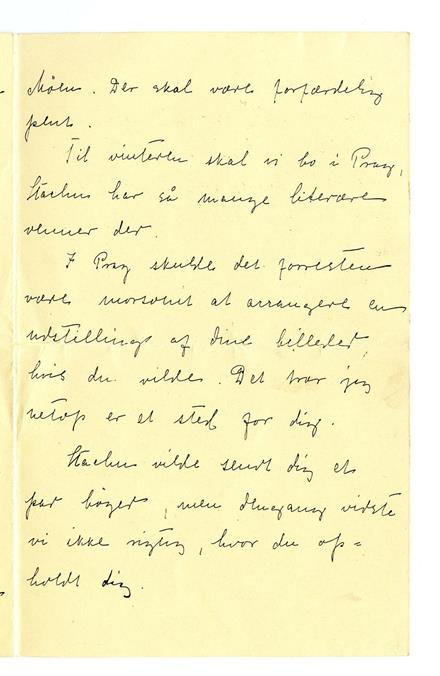 Möen. Der skal være forfærdelig
pent.
Til vinteren skal vi bo i Prag,
Stachu har så mange literære
venner der.
I Prag skulde det forresten
være morsomt at arrangere en
udstilling af dine billeder,
hvis du vilde. Det tror jeg
netop er et sted for dig.
Stachu vilde sendt dig et
par bøger, men dengang vidste
vi ikke rigtig, hvor du op=
holdt dig.